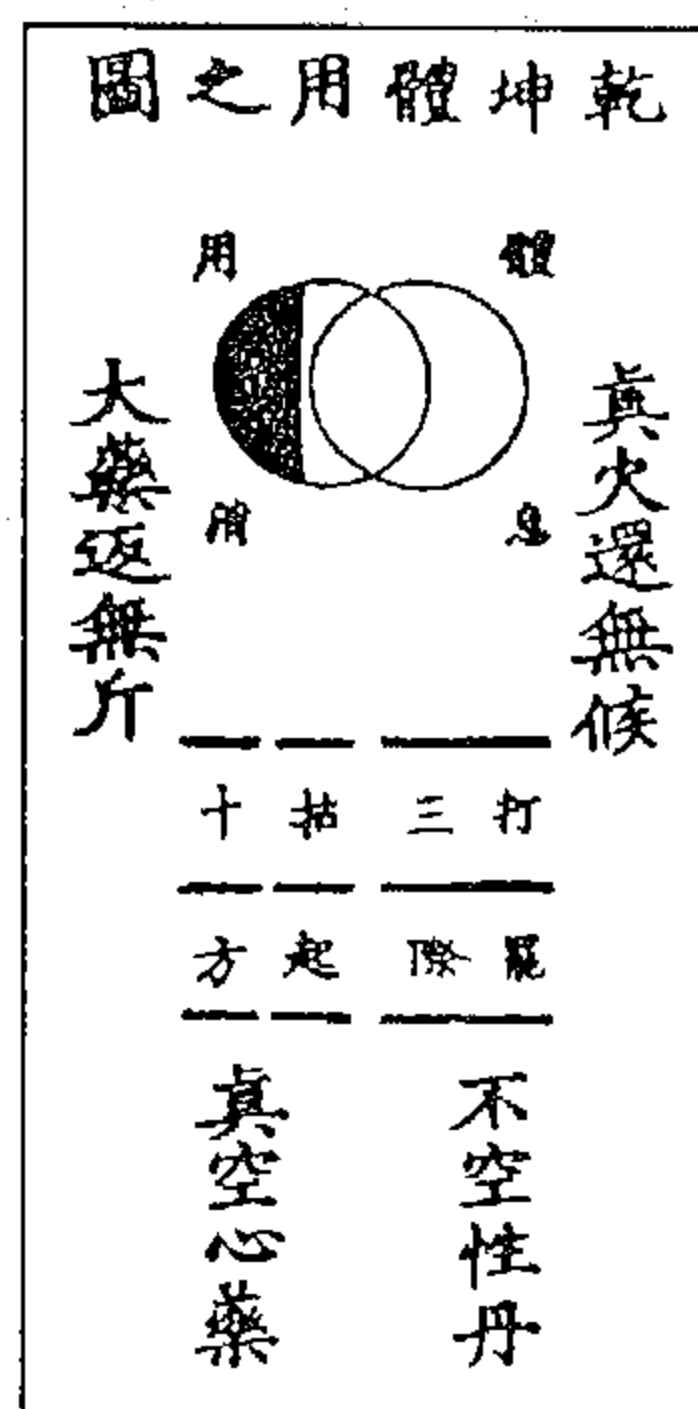 乾坤體用之圖
體
用
息
消
真火還無候
大藥返無斤
打罷
三際
拈起
十方
不空性丹
真空心藥